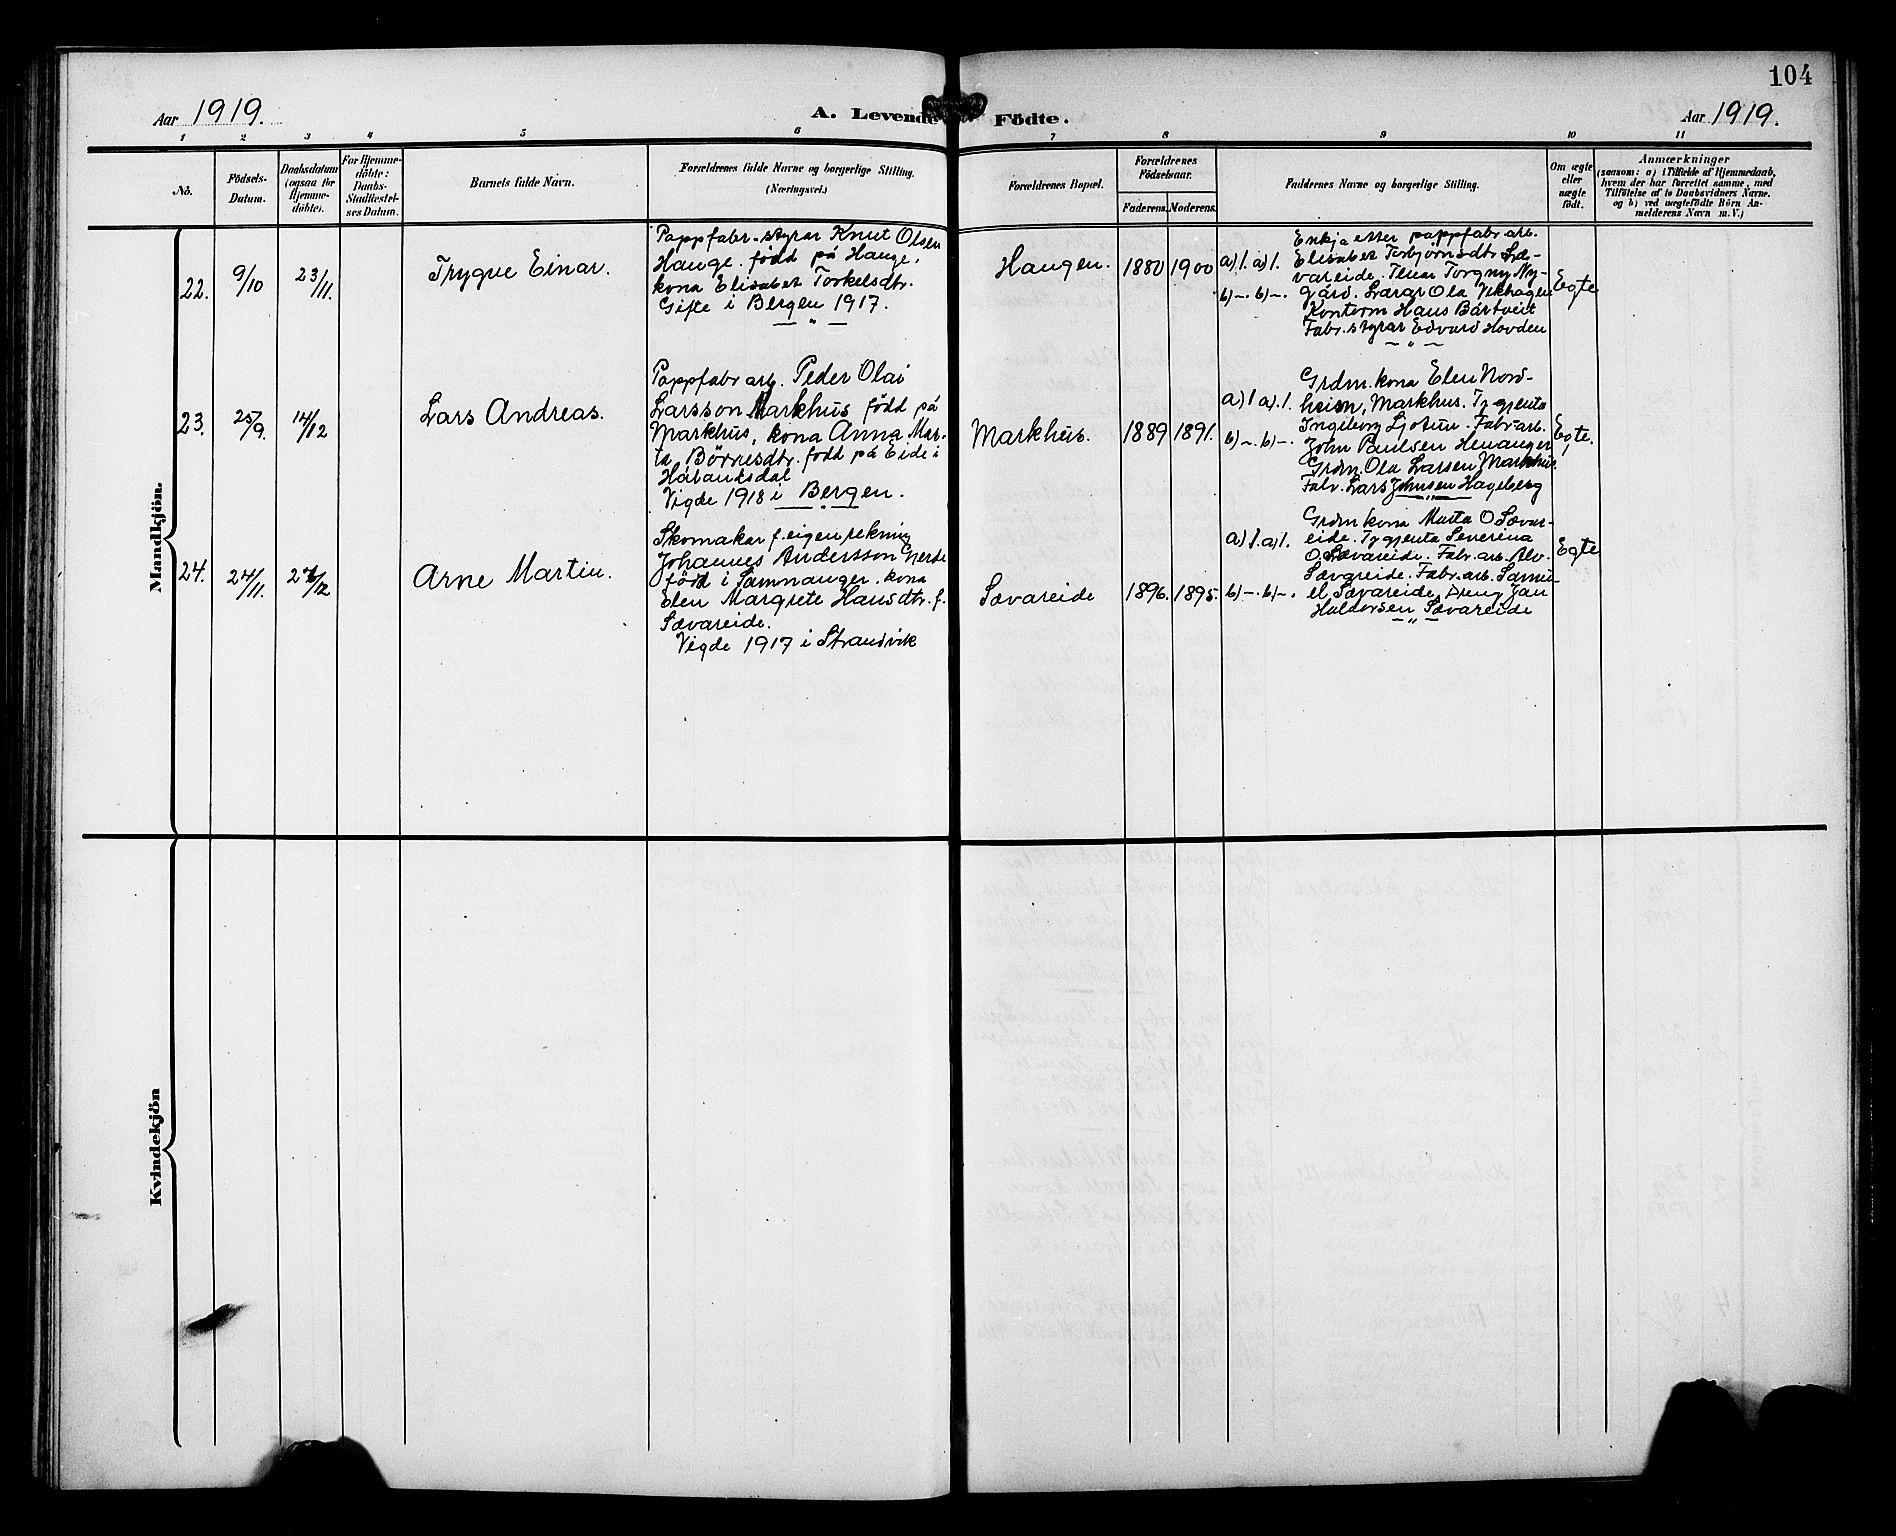 104
Aar 1919.
A. Levende Födte.
Aar 1919.
1 2 3 4 5 6 7 8 9 10 11
No.
Födsels-
Datum.
Daabsdatum
(ogsaa for
Hjemme-
döbte).
For Hjemme-
döbte:
Daabs-
Stadfæstel-
ses Datum.
Barnets fulde Navn.
Forældrenes fulde Navne og borgerlige Stilling.
(Næringsvei.)
Forældrenes Bopæl.
Forældrenes
Födselsaar.
Faderens. Moderens.
Faddernes Navne og borgerlige Stilling.
Om ægte
eller
uægte
födt.
Anmærkninger
(saasom: a) i Tilfælde af Hjemmedaab,
hvem der har forrettet samme, med
Tilföielse af to Daabsvidners Navne.
og b) ved uægtefödte Börn An-
melderens Navn m. V.)
Mandkjön.
22.
9/10
23/11.
Trygve Einar.
Pappfabr. styrar Knut Olsen
Hauge. född på Hauge,
kona Elisabet Torkelsdtr.
Gifte i Bergen 1917.
— " —
Haugen.
1880
1900
a) 1. a) 1.
b) —. b) —.
Enkja etter pappfabr. arb.
Elisabet Torbjörnsdtr Sæ-
vareide. Tenar Torgny Ny-
gård. Lærar Ola Vikhagen
Kontorm Hans Bårtveit
Fabr. styrar Edvard Hovden
— " —
Egte
23.
25/9.
14/12
Lars Andreas.
Pappfabr arb. Peder Olai
Larsson Markhus född på
Markhus, kona Anna Mar-
ta Börresdtr. född på Eide i
Hålandsdal
Vigde 1918 i Bergen.
— " —
Markhus.
1889
1891.
a) 1 a). 1.
b) —. b) —.
Grdm. kona Elen Nord-
heim, Markhus. Tygjenta
Ingeborg Ljotun. Fabr. arb.
John Paulsen Henanger
Grdm. Ola Larsen Markhus.
Fabr. Lars Johnsen Hageberg
— " —
Egte.
24.
24/11.
27/12
Arne Martin.
Skomakar f. eigen rekning
Johannes Andersson Gjerde
född i Samnanger. kona
Elen Margrete Hansdtr. f.
Sævareide.
Vigde 1917 i Strandvik
Sævareide
1896.
1895.
a) 1. a) 1.
b) —. b) —.
Grdm kona Marta O Sævar-
eide. Tygjenta Severina
O. Sævareide. Fabr. arb. Alv.
Sævareide. Fabr. arb. Samu-
el Sævareide. Dreng Jan
Haldorsen Sævareide
— " —
Egte
Kvindekjön